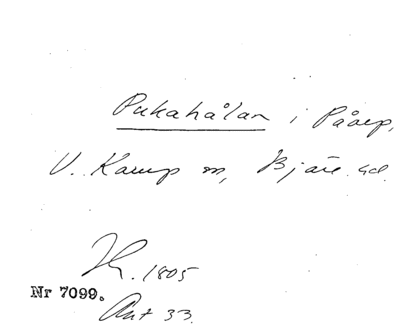 Pukahålan i Påarp,
V. Karup sn, Bjäre hd.
K. 1805
Nr 7099.
Akt 33.